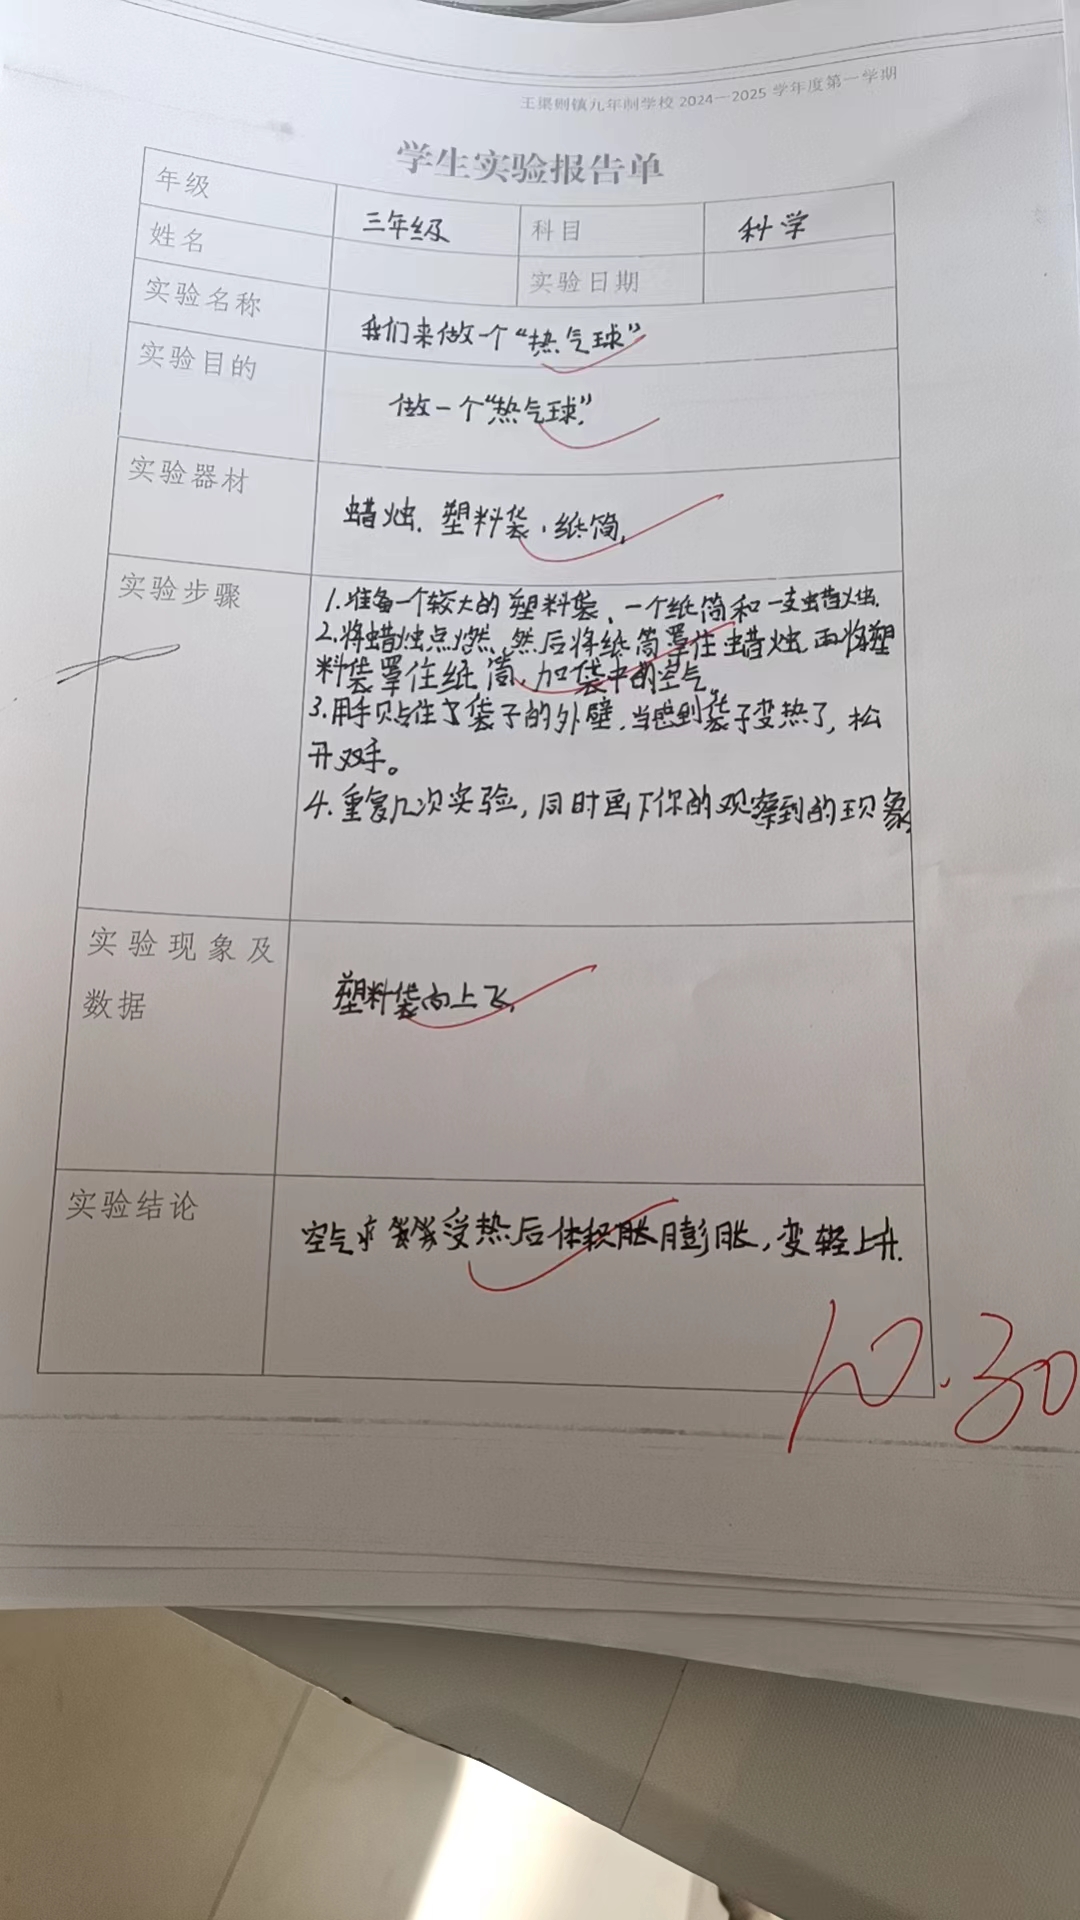 王渠则镇九年制学校 2024—2025 学年度第一学期
学生实验报告单
年级 三年级 科目 科学
姓名 实验日期
实验名称 我们来做一个“热气球”
实验目的 做一个“热气球”.
实验器材 蜡烛. 塑料袋. 纸筒.
实验步骤
1.准备一个较大的塑料袋、一个纸筒和一支蜡烛.
2.将蜡烛点燃,然后将纸筒罩住蜡烛,再将塑
料袋罩住纸筒,加袋中的空气。
3.用手贴住了袋子的外壁,当感到袋子变热了,松
开双手。
4.重复几次实验,同时画下你的观察到的现象.
实验现象及
数据
塑料袋向上飞.
实验结论 空气 受热后体积胀膨胀,变轻上升.
10.30